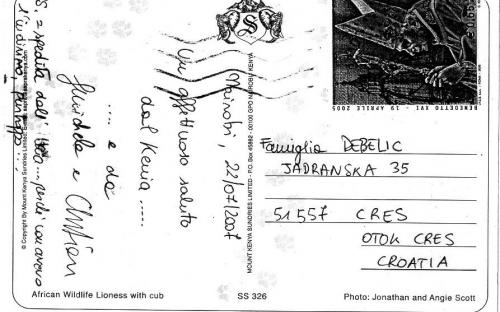 Nairobi, 22/07/2007
Un affettuoso saluto
dal Kenia .....
..... e da
© Copyright By Mount Kenya Sundries Limited
MOUNT KENYA SUNDRIES LIMITED - P.O. Box 45882 - 00100 GPO NAIROBI, KENYA
S
BENEDETTO XVI 19 APRILE 2005
Famiglia DEBELIC
JADRANSKA 35
51557 CRES
OTOK CRES
CROATIA
African Wildlife Lioness with cub
SS 326
Photo: Jonathan and Angie Scott